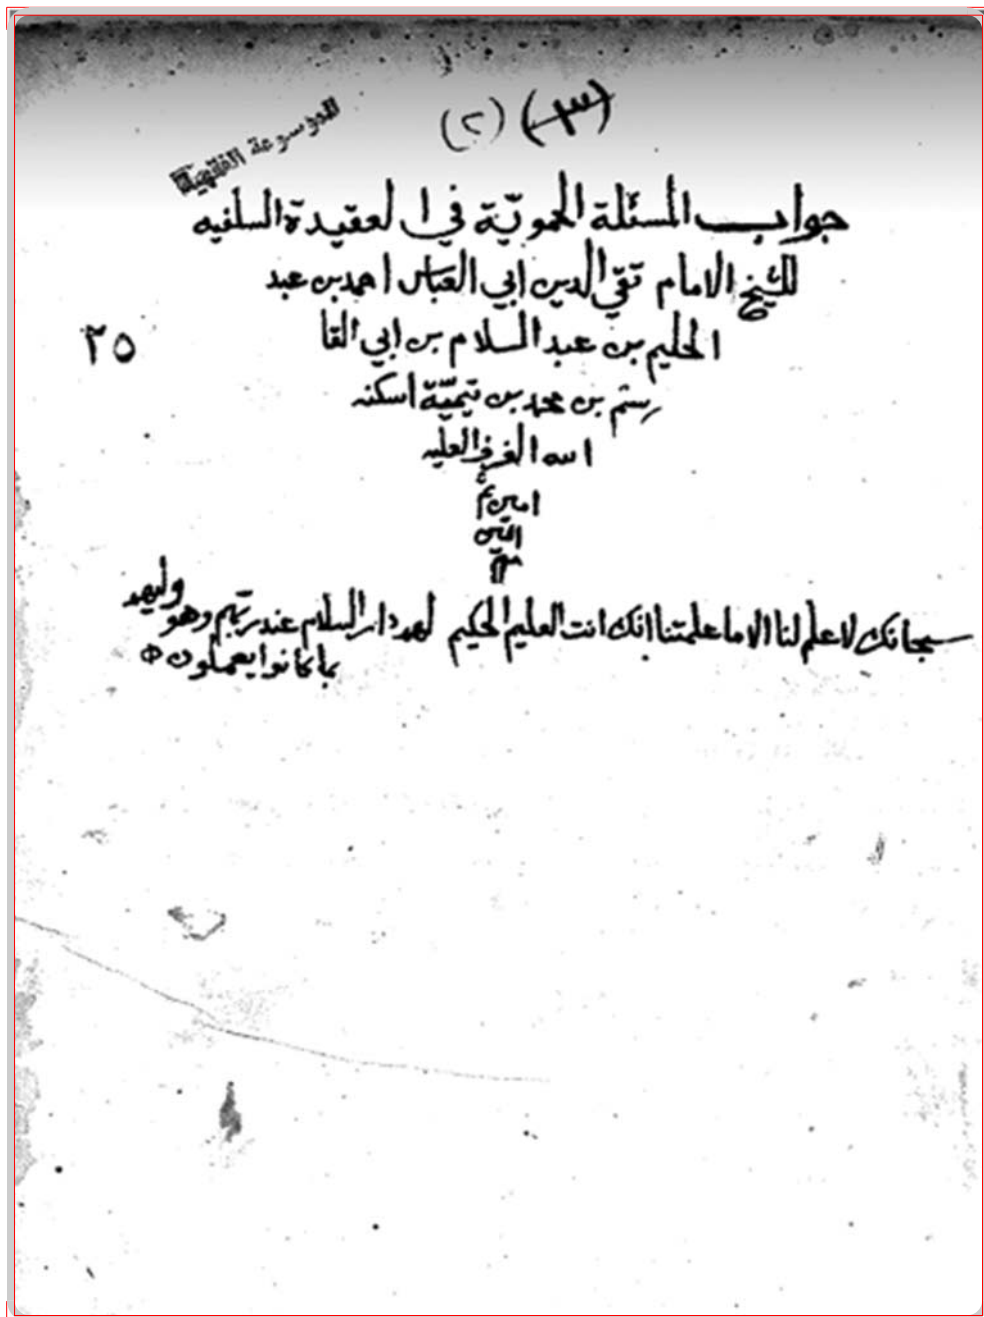 (٣) (٢)
للموسوعة الفقهية
جواب المسئلة الحمويّة في العقيدة السلفيه
للشيخ الامام تقي الدين ابي العباس احمد بن عبد
الحليم بن عبد السلام بن ابي القا
٢٥
سم بن محمد بن تيميّة اسكنه
الله الغرف العليه
امين
سبحانك لا علم لنا الا ما علمتنا انك انت العليم الحكيم لهم دار السلام عند ربهم وهو وليهم
بما كانوا يعملون